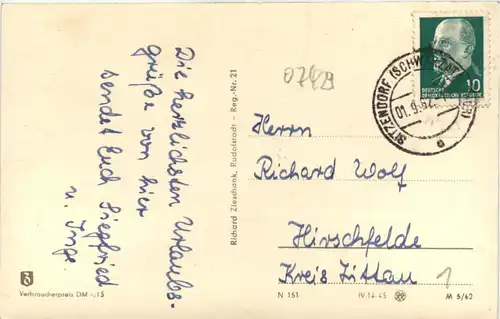 Die herzlichsten Urlaubs-
grüße von hier
sendet Euch Siegfried
u. Inge.
Verbraucherpreis DM -,15
Richard Zieschank, Rudolstadt - Reg.-Nr. 21
SITZENDORF (SCHWARZATAL)
01.9.62
a
DEUTSCHE
DEMOKRATISCHE REPUBLIK
10
Herrn
Richard Wolf
Hirschfelde
Kreis Zittau
1
N 151
IV-14-45
M 5/62